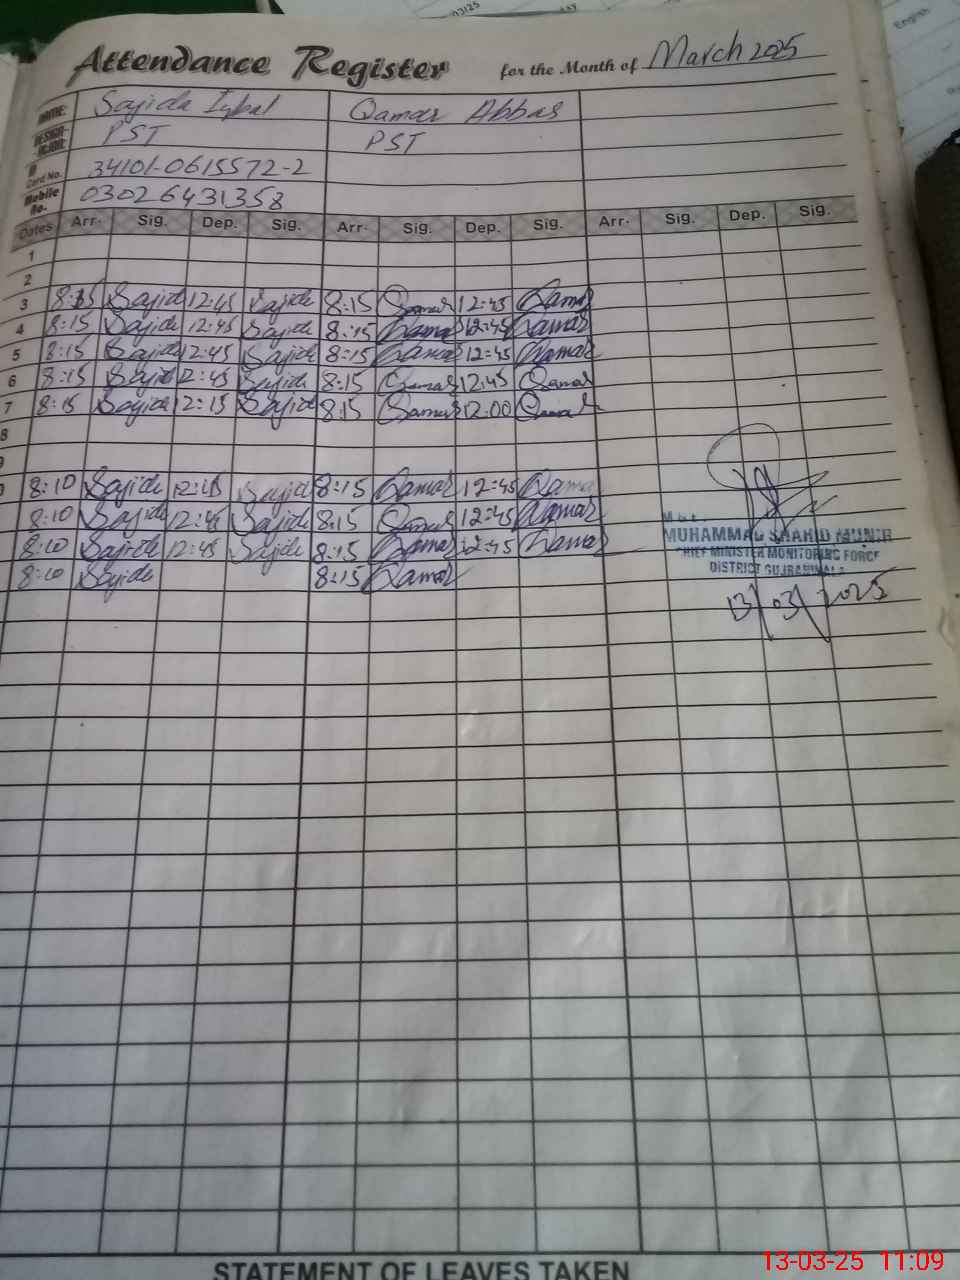 Attendance Register for the Month of March 2025
NAME: Sajida Iqbal Qamar Abbas
PST PST
Card No. 34101-0615572-2
Mobile No. 03026431358
Dates Arr. Sig. Dep. Sig. Arr. Sig. Dep. Sig. Arr. Sig. Dep. Sig.
1
2
3 8:15 Sajida 12:45 Sajida 8:15 Qamar 12:45 Qamar
4 8:15 Sajida 12:45 Sajida 8:15 Qamar 12:45 Qamar
5 8:15 Sajida 12:45 Sajida 8:15 Qamar 12:45 Qamar
6 8:15 Sajida 12:45 Sajida 8:15 Qamar 12:45 Qamar
7 8:15 Sajida 12:15 Sajida 8:15 Qamar 12:00 Qamar
8
8:10 Sajida Sajida 8:15 Qamar 12:45 Qamar
8:10 Sajida 12:45 Sajida 8:15 Qamar 12:45 Qamar
8:10 Sajida 12:45 Sajida 8:15 Qamar 12:45 Qamar
8:10 Sajida 8:15 Qamar
MUHAMMAD SHAHID MUNIR
CHIEF MINISTER MONITORING FORCE
DISTRICT GUJRANWALA
13/03/2025
STATEMENT OF LEAVES TAKEN
13-03-25 11:09